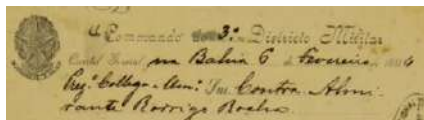 Commando do 3º Districto Militar
Quartel General, na Bahia 6 de Fevereiro de 1
Collega Am.º Snr. Contra Almi-
rante Rodrigo Rocha.